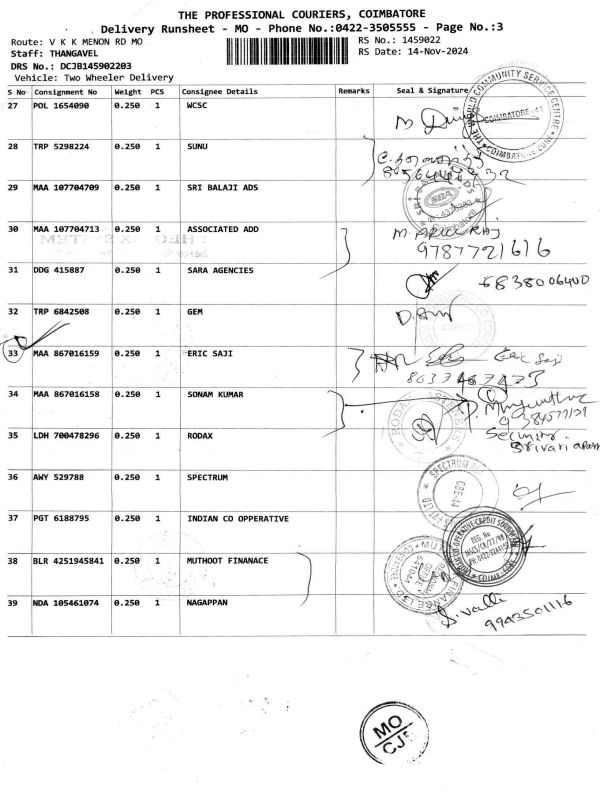 THE PROFESSIONAL COURIERS, COIMBATORE
Delivery Runsheet - MO - Phone No.:0422-3505555 - Page No.:3
Route: V K K MENON RD MO
RS No.: 1459022
Staff: THANGAVEL
RS Date: 14-Nov-2024
DRS No.: DCJB145902203
Vehicle: Two Wheeler Delivery
S No Consignment No Weight PCS Consignee Details Remarks Seal & Signature
27 POL 1654090 0.250 1 WCSC
THE WORLD COMMUNITY SERVICE CENTRE
COIMBATORE-44
COIMBATORE ZONE
28 TRP 5298224 0.250 1 SUNU
29 MAA 107704709 0.250 1 SRI BALAJI ADS
SBA
Coimbatore
30 MAA 107704713 0.250 1 ASSOCIATED ADD
M. ARUL RAJ
9787721616
31 DDG 415887 0.250 1 SARA AGENCIES
6838006400
32 TRP 6842508 0.250 1 GEM
33 MAA 867016159 0.250 1 ERIC SAJI
Eric Saji
34 MAA 867016158 0.250 1 SONAM KUMAR
35 LDH 700478296 0.250 1 RODAX
RODAX
Srivari
36 AWY 529788 0.250 1 SPECTRUM
SPECTRUM
CBE-44
PVT LTD
37 PGT 6188795 0.250 1 INDIAN CO OPPERATIVE
CO-OPERATIVE CREDIT
REG. No
MSCS/CR/77/99
38 BLR 4251945841 0.250 1 MUTHOOT FINANACE
39 NDA 105461074 0.250 1 NAGAPPAN
S. Valli
9943501116
MO
CJB